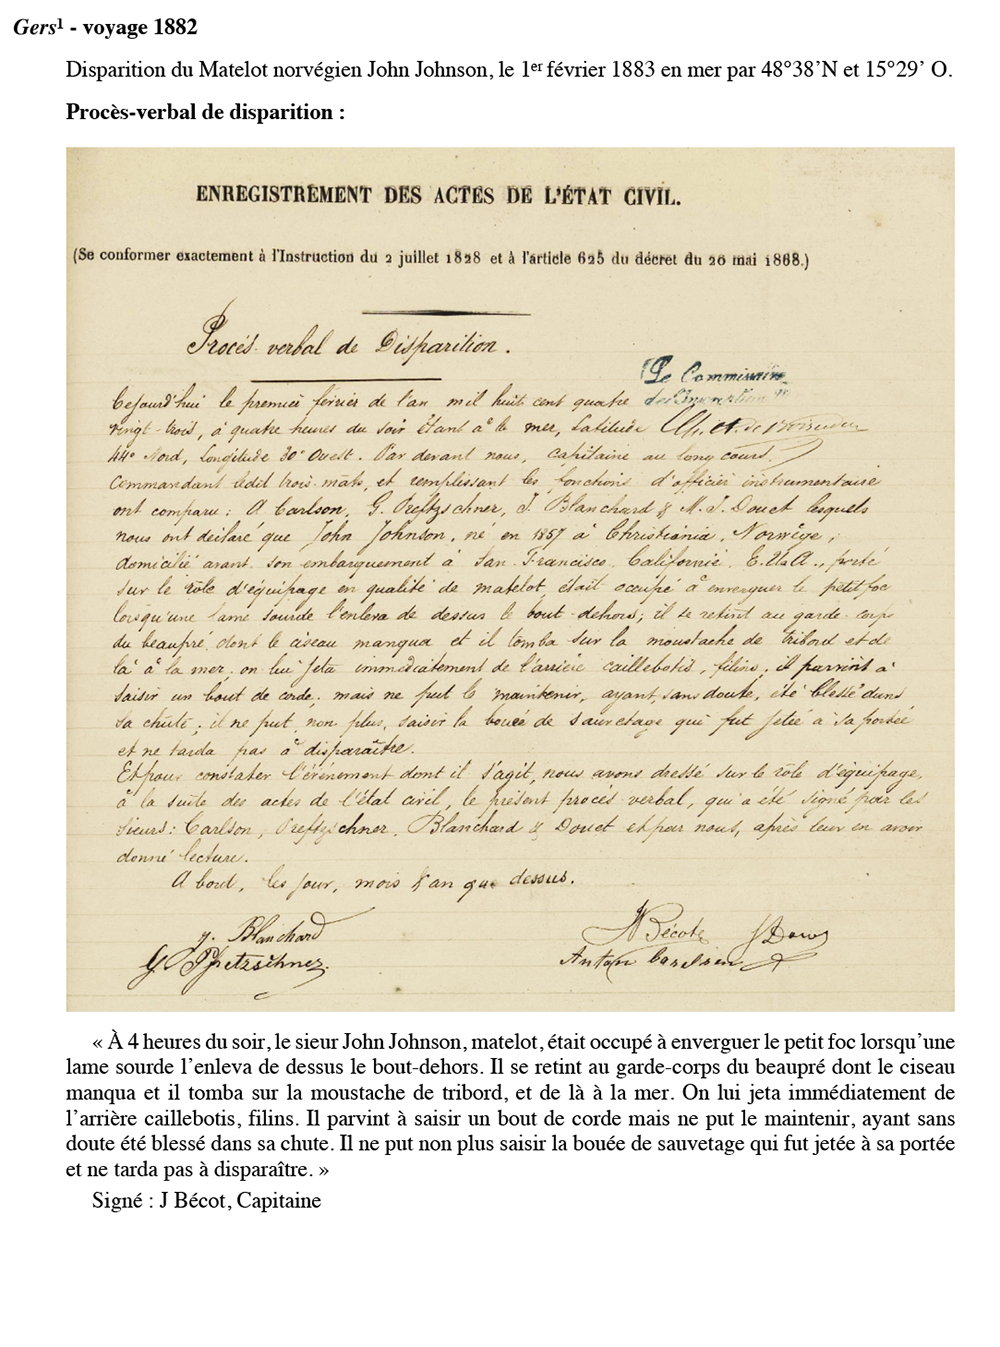 Gers¹ - voyage 1882
Disparition du Matelot norvégien John Johnson, le 1er février 1883 en mer par 48°38’N et 15°29’ O.
Procès-verbal de disparition :
ENREGISTREMENT DES ACTES DE L'ÉTAT CIVIL.
(Se conformer exactement à l'Instruction du 2 juillet 1828 et à l'article 625 du décret du 20 mai 1868.)
Procés-verbal de Disparition.
Le Commissaire
Cejourd'hui le premier février de l'an mil huit cent quatre
vingt-trois, à quatre heures du soir étant à la mer, Latitude
44° Nord, Longitude 30° Ouest. Par devant nous, capitaine au long cours,
commandant ledit trois-mats, et remplissant les fonctions d'officier instrumentaire
ont comparu : A Carlson, G. Preftzschner, J. Blanchard & M. J. Douet lesquels
nous ont déclaré que John Johnson, né en 1857 à Christiania, Norwège,
domicilié avant son embarquement à San Francisco, Californie, E. U. A., porté
sur le rôle d'équipage en qualité de matelot, était occupé à enverguer le petit foc
lorsqu'une lame sourde l'enleva de dessus le bout-dehors ; il se retint au garde-corps
du beaupré dont le ciseau manqua et il tomba sur la moustache de tribord et de
là à la mer, on lui jeta immédiatement de l'arrière caillebotis, filins, il parvint à
saisir un bout de corde, mais ne put le maintenir, ayant, sans doute, été blessé dans
sa chûte ; il ne put, non plus, saisir la bouée de sauvetage qui fut jetée à sa portée
et ne tarda pas à disparaître.
Et pour constater l'événement dont il s'agit, nous avons dressé sur le rôle d'équipage,
à la suite des actes de l'état civil, le présent procès verbal, qui a été signé par les
sieurs : Carlson, Preftzschner, Blanchard & Douet et par nous, après leur en avoir
donné lecture.
A bord, les jour, mois & an que dessus.
J. Blanchard
N Bécot
G. Pfretzschner
Anton Carlson
« À 4 heures du soir, le sieur John Johnson, matelot, était occupé à enverguer le petit foc lorsqu’une
lame sourde l’enleva de dessus le bout-dehors. Il se retint au garde-corps du beaupré dont le ciseau
manqua et il tomba sur la moustache de tribord, et de là à la mer. On lui jeta immédiatement de
l’arrière caillebotis, filins. Il parvint à saisir un bout de corde mais ne put le maintenir, ayant sans
doute été blessé dans sa chute. Il ne put non plus saisir la bouée de sauvetage qui fut jetée à sa portée
et ne tarda pas à disparaître. »
Signé : J Bécot, Capitaine